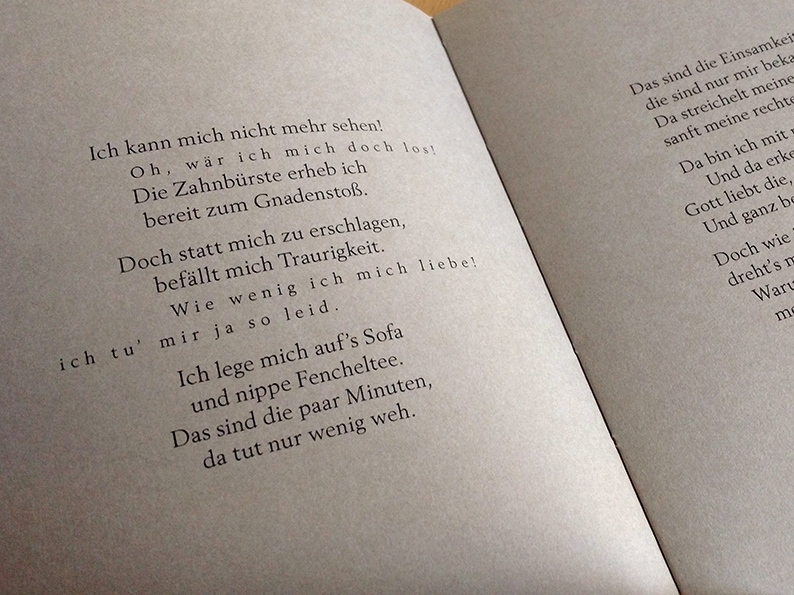 Ich kann mich nicht mehr sehen!
Oh, wär ich mich doch los!
Die Zahnbürste erheb ich
bereit zum Gnadenstoß.
Doch statt mich zu erschlagen,
befällt mich Traurigkeit.
Wie wenig ich mich liebe!
ich tu' mir ja so leid.
Ich lege mich auf's Sofa
und nippe Fencheltee.
Das sind die paar Minuten,
da tut nur wenig weh.
Das sind die
die sind nur mir
Da streichelt meine
sanft meine
Da bin ich mit
Und da
Gott liebt die,
Und ganz
Doch wie
dreht's